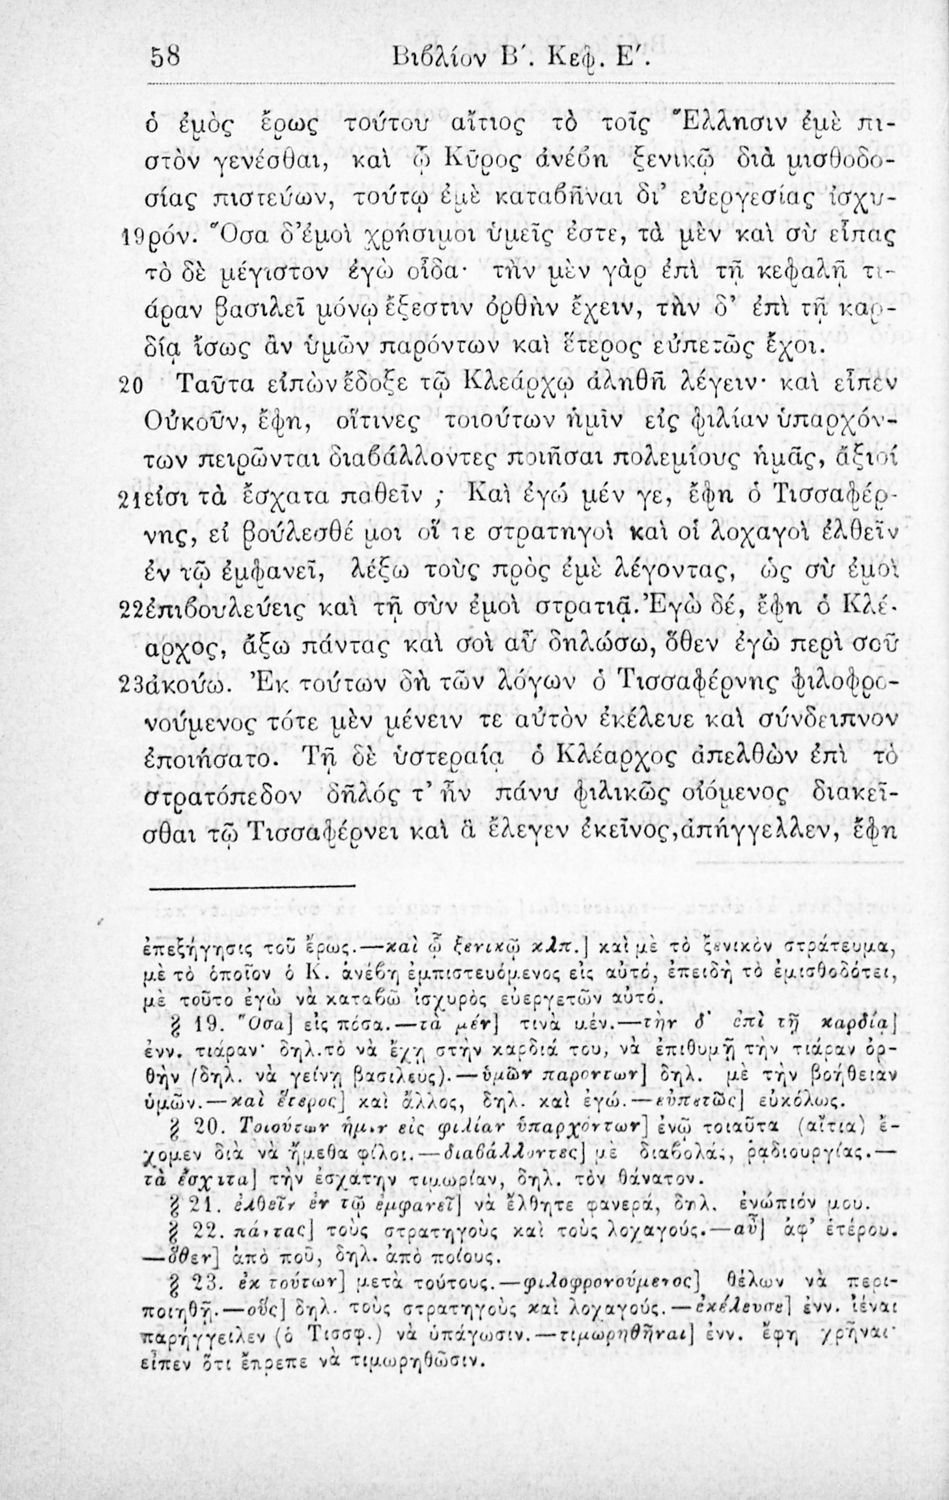 58 Βιβλίον Β΄. Κεφ. Ε΄.
ὁ ἐμὸς ἔρως τούτου αἴτιος τὸ τοῖς Ἕλλησιν ἐμὲ πι-
στὸν γενέσθαι, καὶ ᾧ Κῦρος ἀνέβη ξενικῷ διὰ μισθοδο-
σίας πιστεύων, τούτῳ ἐμὲ καταβῆναι δι’ εὐεργεσίας ἰσχυ-
19ρόν. Ὅσα δ’ἐμοὶ χρήσιμοι ὑμεῖς ἐστε, τὰ μὲν καὶ σὺ εἶπας
τὸ δὲ μέγιστον ἐγὼ οἶδα· τὴν μὲν γὰρ ἐπὶ τῇ κεφαλῇ τι-
άραν βασιλεῖ μόνῳ ἔξεστιν ὀρθὴν ἔχειν, τὴν δ’ ἐπὶ τῇ καρ-
δίᾳ ἴσως ἂν ὑμῶν παρόντων καὶ ἕτερος εὐπετῶς ἔχοι.
20 Ταῦτα εἰπὼν ἔδοξε τῷ Κλεάρχῳ ἀληθῆ λέγειν· καὶ εἶπεν
Οὐκοῦν, ἔφη, οἵτινες τοιούτων ἡμῖν εἰς φιλίαν ὑπαρχόν-
των πειρῶνται διαβάλλοντες ποιῆσαι πολεμίους ἡμᾶς, ἄξιοί
21εἰσι τὰ ἔσχατα παθεῖν ; Καὶ ἐγώ μέν γε, ἔφη ὁ Τισσαφέρ-
νης, εἰ βούλεσθέ μοι οἵ τε στρατηγοὶ καὶ οἱ λοχαγοὶ ἐλθεῖν
ἐν τῷ ἐμφανεῖ, λέξω τοὺς πρὸς ἐμὲ λέγοντας, ὡς σὺ ἐμοὶ
22ἐπιβουλεύεις καὶ τῇ σὺν ἐμοὶ στρατιᾷ. Ἐγὼ δέ, ἔφη ὁ Κλέ-
αρχος, ἄξω πάντας καὶ σοὶ αὖ δηλώσω, ὅθεν ἐγὼ περὶ σοῦ
23ἀκούω. Ἐκ τούτων δὴ τῶν λόγων ὁ Τισσαφέρνης φιλοφρο-
νούμενος τότε μὲν μένειν τε αὐτὸν ἐκέλευε καὶ σύνδειπνον
ἐποιήσατο. Τῇ δὲ ὑστεραίᾳ ὁ Κλέαρχος ἀπελθὼν ἐπὶ τὸ
στρατόπεδον δῆλός τ’ ἦν πάνυ φιλικῶς οἰόμενος διακεῖ-
σθαι τῷ Τισσαφέρνει καὶ ἃ ἔλεγεν ἐκεῖνος,ἀπήγγελλεν, ἔφη
ἐπεξήγησις τοῦ ἔρως.—καὶ ᾧ ξενικῷ κλπ.] καὶ μὲ τὸ ξενικὸν στράτευμα,
μὲ τὸ ὁποῖον ὁ Κ. ἀνέβη ἐμπιστευόμενος εἰς αὐτό, ἐπειδὴ τὸ ἐμισθοδότει,
μὲ τοῦτο ἐγὼ νὰ καταβῶ ἰσχυρὸς εὐεργετῶν αὐτό.
§ 19. Ὅσα] εἰς πόσα.—τὰ μέν] τινὰ μέν.—τὴν δ’ ἐπὶ τῇ καρδίᾳ]
ἐνν. τιάραν· δηλ.τὸ νὰ ἔχῃ στὴν καρδιά του, νὰ ἐπιθυμῇ τὴν τιάραν ὀρ-
θὴν (δηλ. νὰ γείνῃ βασιλεύς).—ὑμῶν παρόντων] δηλ. μὲ τὴν βοήθειαν
ὑμῶν.—καὶ ἕτερος] καὶ ἄλλος, δηλ. καὶ ἐγώ.—εὐπετῶς] εὐκόλως.
§ 20. Τοιούτων ἡμῖν εἰς φιλίαν ὑπαρχόντων] ἐνῷ τοιαῦτα (αἴτια) ἔ-
χομεν διὰ νὰ ἤμεθα φίλοι.—διαβάλλοντες] μὲ διαβολάς, ῥαδιουργίας.—
τὰ ἔσχατα] τὴν ἐσχάτην τιμωρίαν, δηλ. τὸν θάνατον.
§ 21. ἐλθεῖν ἐν τῷ ἐμφανεῖ] νὰ ἔλθητε φανερά, δηλ. ἐνώπιόν μου.
§ 22. πάντας] τοὺς στρατηγοὺς καὶ τοὺς λοχαγούς.—αὖ] ἀφ’ ἑτέρου.
—ὅθεν] ἀπὸ ποῦ, δηλ. ἀπὸ ποίους.
§ 23. ἐκ τούτων] μετὰ τούτους.—φιλοφρονούμενος] θέλων νὰ περι-
ποιηθῇ.—οὓς] δηλ. τοὺς στρατηγοὺς καὶ λοχαγούς.—ἐκέλευσε] ἐνν. ἰέναι
παρήγγειλεν (ὁ Τισσφ.) νὰ ὑπάγωσιν.—τιμωρηθῆναι] ἐνν. ἔφη χρῆναι·
εἶπεν ὅτι ἔπρεπε νὰ τιμωρηθῶσιν.